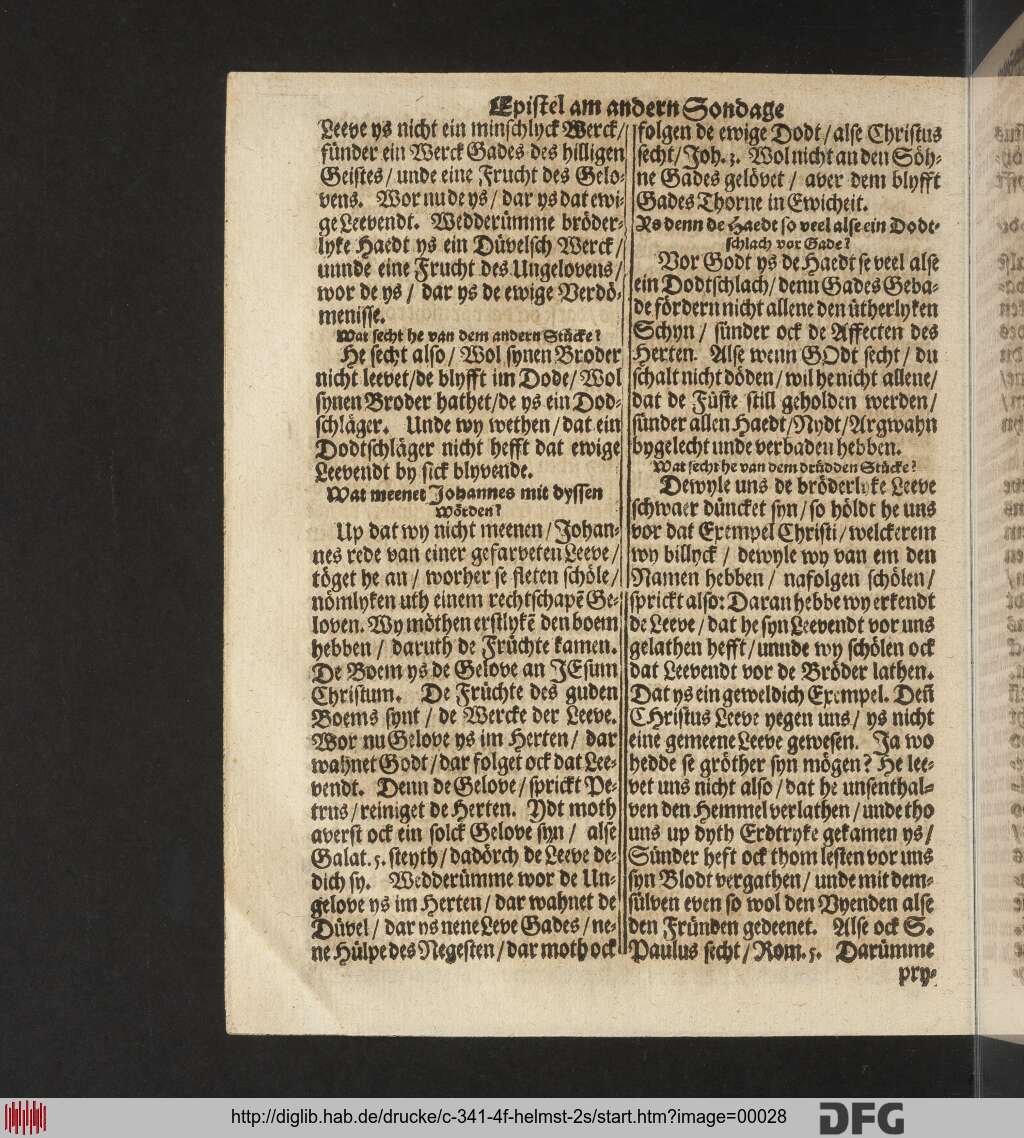 Epistel am andern Sondage
Leeve ys nicht ein minschlyck Werck/
sünder ein Werck Gades des hilligen
Geistes / unde eine Frucht des Gelo-
vens. Wor nu de ys / dar ys dat ewi-
ge Leevendt. Wedderümme bröder-
lyke Haedt ys ein Düvelsch Werck/
unnde eine Frucht des Ungelovens/
wor de ys / dar ys de ewige Verdö-
menisse.
Wat secht he van dem andern Stücke?
He secht also/ Wol synen Broder
nicht leevet/de blyfft im Dode/ Wol
synen Broder hathet/de ys ein Dod-
schläger. Unde wy wethen/ dat ein
Dodtschläger nicht hefft dat ewige
Leevendt by sick blyvende.
Wat meenet Johannes mit dyssen
wörden?
Up dat wy nicht meenen / Johan-
nes rede van einer gefarveten Leeve/
töget he an / worher se fleten schöle/
nömlyken uth einem rechtschapē Ge-
loven. Wy möthen erstlykē den boem
hebben / daruth de Früchte kamen.
De Boem ys de Gelove an JEsum
Christum. De Früchte des guden
Boems synt / de Wercke der Leeve.
Wor nu Gelove ys im Herten/ dar
wahnet Godt/dar folget ock dat Lee-
vendt. Denn de Gelove/ sprickt Pe-
trus/reiniget de Herten. Ydt moth
averst ock ein solck Gelove syn / alse
Galat. 5. steyth/dadörch de Leeve de-
dich sy. Wedderümme wor de Un-
gelove ys im Herten/ dar wahnet de
Düvel/ dar ys nene Leve Gades/ ne-
ne Hülpe des Negesten/dar moth ock
folgen de ewige Dodt/ alse Christus
secht/ Joh. 3. Wol nicht an den Söh-
ne Gades gelövet / aver dem blyfft
Gades Thorne in Ewicheit.
Ys denn de Haedt so veel alse ein Dodt-
schlach vor Gade?
Vor Godt ys de Haedt se veel alse
ein Dodtschlach/ denn Gades Geba-
de fördern nicht allene den ütherlyken
Schyn / sünder ock de Affecten des
Herten. Alse wenn GOdt secht/ du
schalt nicht döden/ wil he nicht allene/
dat de Füste still geholden werden/
sünder allen Haedt/Nydt/Argwahn
bygelecht unde verbaden hebben.
Wat secht he van dem drüdden Stücke?
Dewyle uns de bröderlyke Leeve
schwaer düncket syn/ so höldt he uns
vor dat Exempel Christi/ welckerem
wy billyck / dewyle wy van em den
Namen hebben / nafolgen schölen/
sprickt also: Daran hebbe wy erkendt
de Leeve/dat he syn Leevendt vor uns
gelathen hefft/ unnde wy schölen ock
dat Leevendt vor de Bröder lathen.
Dat ys ein geweldich Exempel. Deñ
CHristus Leeve yegen uns/ ys nicht
eine gemeene Leeve gewesen. Ja wo
hedde se gröther syn mögen? He lee-
vet uns nicht also/ dat he unsenthal-
ven den Hemmel verlathen/ unde tho
uns up dyth Erdtryke gekamen ys/
Sünder heft ock thom lesten vor uns
syn Blodt vergathen/ unde mit dem-
sülven even so wol den Vyenden alse
den Fründen gedeenet. Alse ock S.
Paulus secht/ Rom. 5. Darümme
pry-
http://diglib.hab.de/drucke/c-341-4f-helmst-2s/start.htm?image=00028
DFG